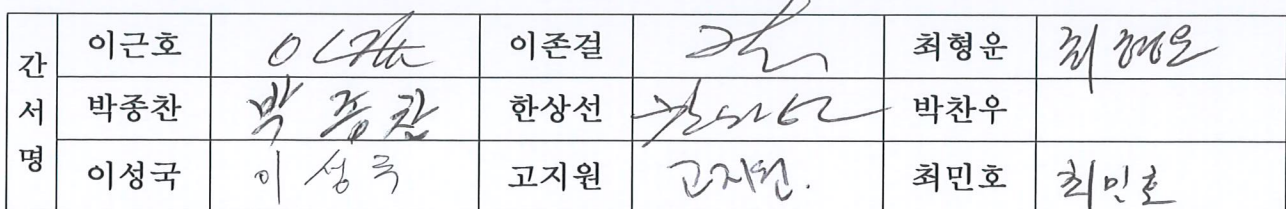 간서명
이근호 이존걸 최형운 최형운
박종찬 박종찬 한상선 박찬우
이성국 이성국 고지원 고지원. 최민호 최민호